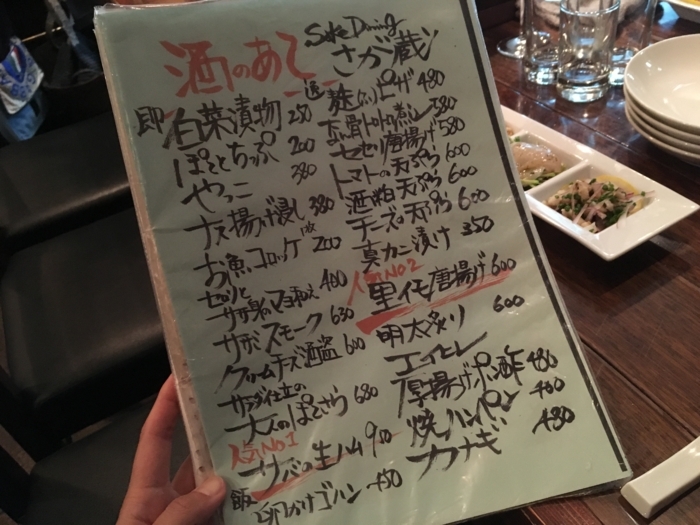 酒のあて
Sake Dining
さか蔵ゾ
即
白菜漬物 250
ぽてとちっぷ 200
やっこ 380
ナス揚げ浸し 380
お魚コロッケ 1枚 200
セロリと
ササ身のマヨ和え 400
サバスモーク 630
クリームチーズ酒盗 600
サラダ仕立の
大人のぽてさら 680
人気No1
サバの生ハム 950
飯
卵かけゴハン 450
逸
ピザ 480
580
セセリ唐揚げ 580
トマトの天ぷら 600
酒粕天ぷら 600
チーズの天ぷら 600
真カニ漬け 350
人気No2
里イモ唐揚げ 600
明太炙り 600
エイヒレ
厚揚げポン酢 480
焼ハンペン 400
カナギ 480